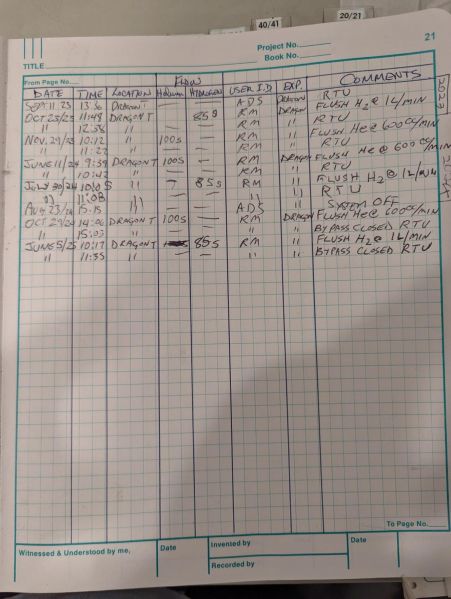 40/41
20/21
21
Project No.
Book No.
TITLE
From Page No.
FLOW
DATE TIME LOCATION HELIUM HYDROGEN USER I.D EXP. COMMENTS
SEPT 11 23 13:36 DRAGON T — — ADS DRAGON RTU
OCT 25/23 11:48 DRAGON T 85 s RM DRAGON FLUSH H2 @ 1L/MIN
" 12:38 " — — RM " RTU
NOV 29/23 10:12 " 100s — RM " FLUSH He @ 600cc/MIN
" 11:22 " — — RM " RTU
JUNE 11/24 9:39 DRAGON T 100s — RM DRAGON FLUSH He @ 600cc/MIN
" 10:42 " — — RM " RTU
30/24 " 85s RM " FLUSH H2 @ 1L/MIN
" 11:08 " — — " " RTU
AUG 23/24 15:15 " — — ADS " SYSTEM OFF
OCT 29/24 14:06 DRAGON T 100s — RM DRAGON FLUSH He @ 600cc/MIN
" 15:03 " — — " " BYPASS CLOSED RTU
JUNE 5/25 10:17 DRAGON T 85s RM " FLUSH H2 @ 1L/MIN
" 11:35 " — — " " BYPASS CLOSED RTU
To Page No.
Witnessed & Understood by me,
Date
Invented by
Date
Recorded by